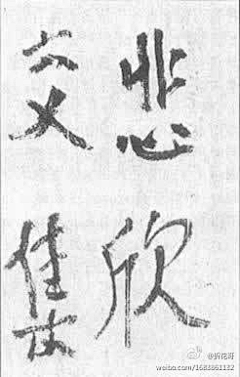 悲欣
交集
@折花哥
weibo.com/1683861132